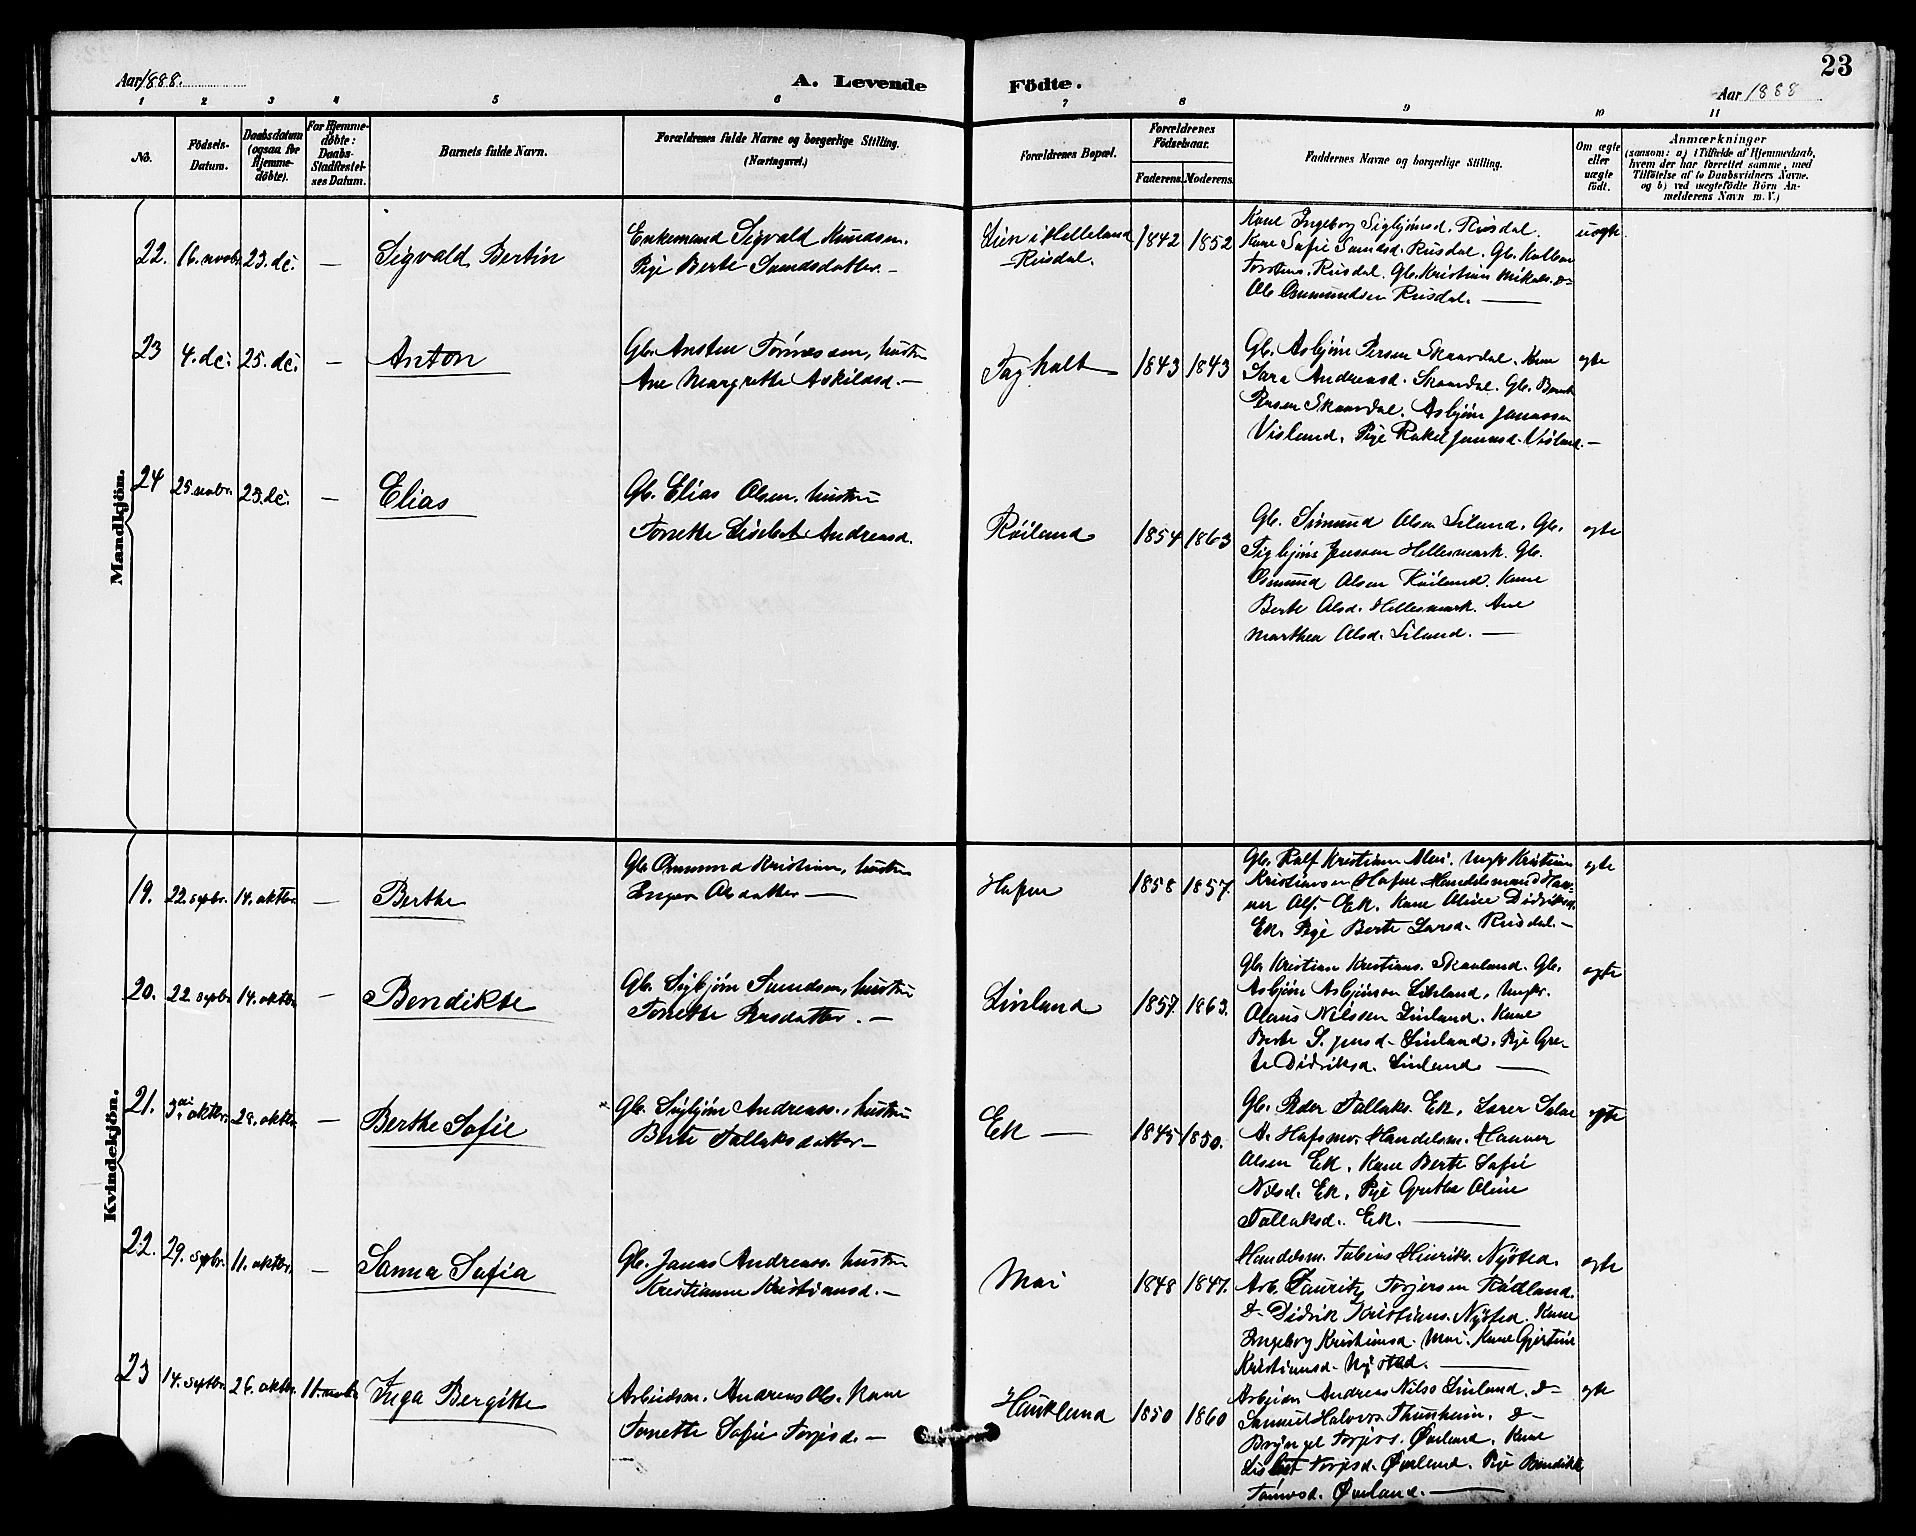 Aar 1888.
A. Levende
Födte.
Aar 1888
23
1 2 3 4 5 6 7 8 9 10 11
No.
Födsels-
Datum.
Daabsdatum
(ogsaa for
Hjemme-
döbte).
For Hjemme-
döbte:
Daabs-
Stadfæstel-
ses Datum.
Barnets fulde Navn.
Forældrenes fulde Navne og borgerlige Stilling.
(Næringsvei.)
Forældrenes Bopæl.
Forældrenes
Födselsaar.
Faderens. Moderens.
Faddernes Navne og borgerlige Stilling.
Om ægte
eller
uægte
födt.
Anmærkninger
(saasom: a) i Tilfælde af Hjemmedaab,
hvem der har forrettet samme, med
Tilföielse af to Daabsvidners Navne.
og b) ved uægtefödte Börn An-
melderens Navn m. V.)
Mandkjön.
22. 16. novbr. 23. dc. — Sigvald Bertin
Enkemand Sigvald Knudsen.
Pige Berte Samdsdatter. —
Lien i Helleland
Risdal.
1842 1852
Kone Ingeborg Sigbjörnsd. Risdal.
Kone Safie Samdsd. Risdal. Gb.
Torstens. Risdal. Gb. Kristian Mikals. d-
Ole Osmundsen Risdal. —
uægte
23 4. dc. 25. dc. — Anton
Gb. Ansten Tönnessen, hustru
Ane Margrethe Askildsd. —
Tagholt
1843 1843
Gb. Asbjörn Persen Skaardal. Kone
Sara Andreasd. Skaardal. Gb. Bernt
Persen Skaardal. Asbjörn Janassen
Visland. Pige Rakel Janasd. Visland. —
egte
24 25. novbr. 23. dc. — Elias
Gb. Elias Olsen, hustru
Tonette Lisebet Andreasd.
Röiland
1854 1863
Gb. Simund Olsen Liland. Gb.
Sigbjörn Jensson Hellesmark. Gb.
Osmund Olsen Röiland. Kone
Berte Olsd. Hellesmark. Ane
Marthea Olsd. Liland. —
egte
Kvindekjön.
19. 22. sepbr. 14. oktbr. — Berthe
Gb. Osmund Kristians, hustru
Inger Olsdatter —
Hafsø
1858 1857.
Gb. Ralf Kristians Moi. Ungk. Kristian
Kristiansen Hafsø. Handelsmand Han-
ner Ols. Ek. Kone Aline Didriksd.
Ek. Pige Berte Larsd. Risdal. —
egte
20. 22. sepbr. 14. oktbr. — Bendikte
Gb. Sigbjörn Samdsen, hustru
Tonette Persdatter. —
Linland
1857. 1863.
Gb. Kristian Kristians. Skanland. Gb.
Asbjörn Asbjörnsen Linland, Ungkr.
Olaus Nilssen Linland. Kone
Berte S. Jensd. Linland. Pige Gre-
te Didriksd. Linland —
egte
21. 3die oktbr. 28. oktbr. — Berthe Sofie
Gb. Sigbjörn Andreass., hustru
Berte Tallaksdatter —
Ek —
1845 1850.
Gb. Peder Tallaks. Ek. Lærer Salve
A. Hafsmo. Handelsm. Hanner
Olsen Ek. Kone Berte Sofie
Nilsd. Ek. Pige Grethe Oline
Tallaksd. Ek. —
egte
22. 29. sepbr. 11. oktbr. — Sanna Sofia
Gb. Janas Andreass. hustru
Kristianne Kristiansd. —
Moi
1848 1847.
Handelsm. Tobias Hinriks. Nysted.
Arb. Lauritz Torjersen Rødland.
d- Didrik Kristians. Nysted. Kone
Ingeborg Kristiansd. Moi. Kone Gjertine
Kristiansd. Nysted. —
egte
23 14. septbr. 26. oktbr. 11. novbr. Inga Bergitte
Arbeidsm. Andreas Ols. Kone
Tonette Sofie Torjersd. —
Hauklund
1850 1860
Arbeidsm. Andreas Nilss. Linland. d-
Samuel Halvors. Thunheim. d-
Bryngel Torjers. Øverland. Kone
Lisebet Torjersd. Øverland. Pige Bendikte
Tönnesd. Øverland. —
egte